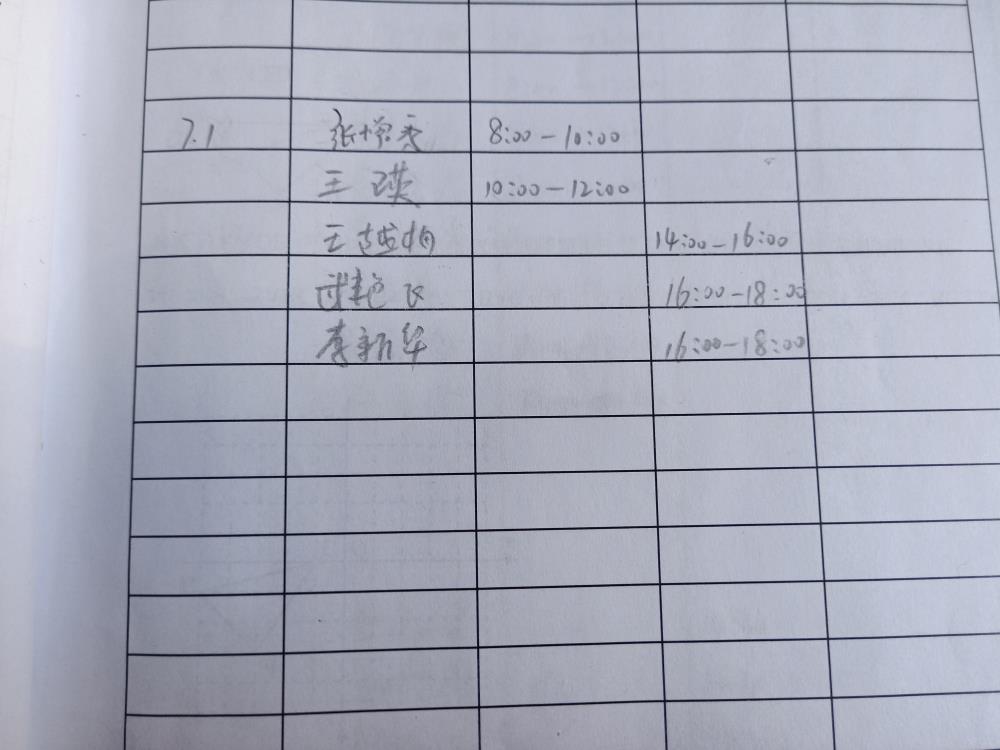 7.1 张增秀 8:00-10:00
王瑛 10:00-12:00
王 14:00-16:00
16:00-18:00
李新华 16:00-18:00